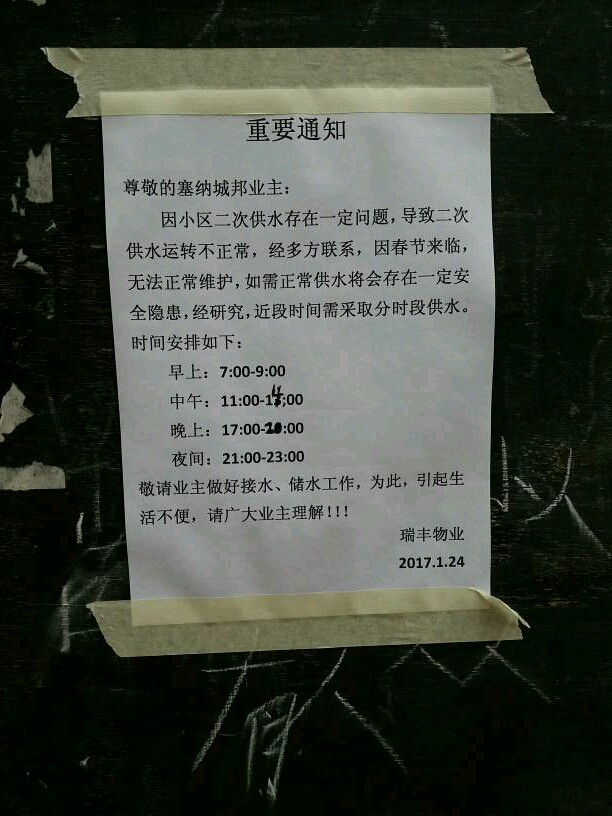 重要通知
尊敬的塞纳城邦业主：
因小区二次供水存在一定问题，导致二次
供水运转不正常，经多方联系，因春节来临，
无法正常维护，如需正常供水将会存在一定安
全隐患，经研究，近段时间需采取分时段供水。
时间安排如下：
早上：7:00-9:00
中午：11:00-14:00
晚上：17:00-20:00
夜间：21:00-23:00
敬请业主做好接水、储水工作，为此，引起生
活不便，请广大业主理解！！！
瑞丰物业
2017.1.24